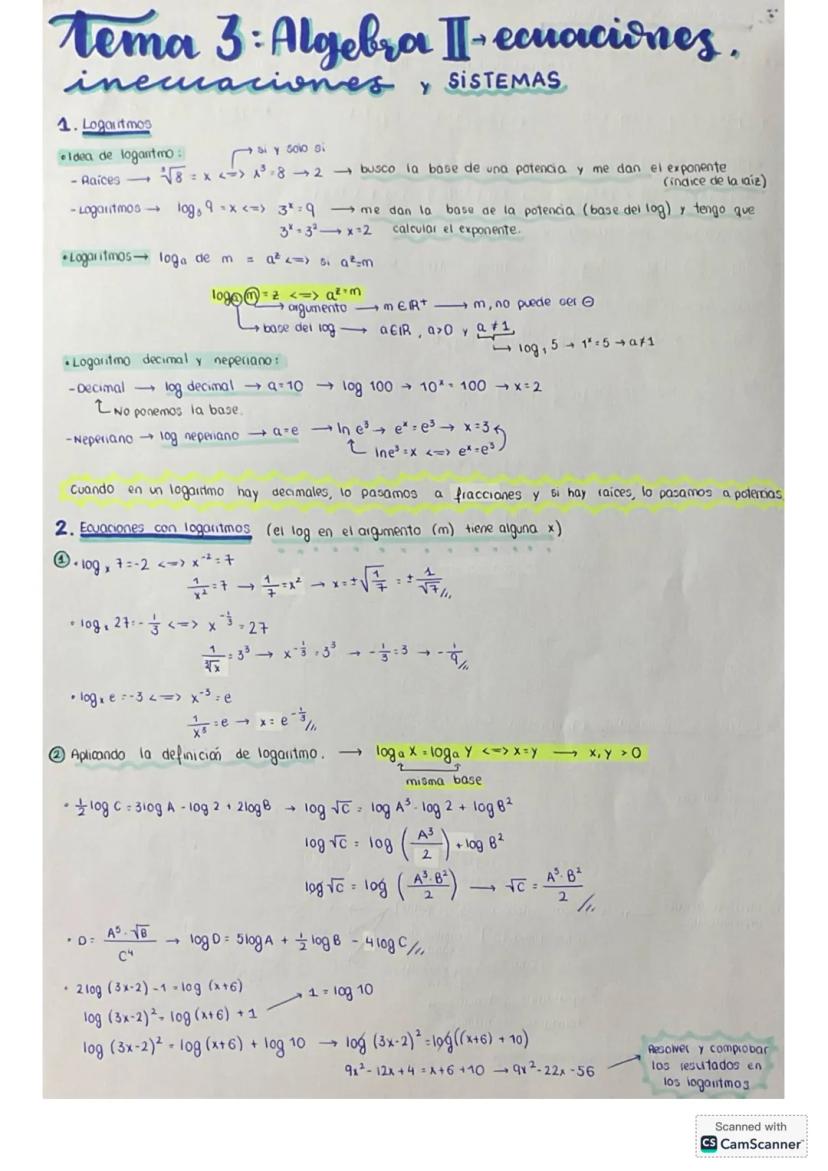 Tema 3: Algebra II → ecuaciones,
inecuaciones y SISTEMAS
1. Logaritmos
• Idea de logaritmo:
→ si y solo si
- Raíces → ∛8 = x <=> x³ = 8 → 2 → busco la base de una potencia y me dan el exponente
(índice de la raíz)
- Logaritmos → log₃ 9 = x <=> 3ˣ = 9 → me dan la base de la potencia (base del log) y tengo que
3ˣ = 3² → x = 2 calcular el exponente.
• Logaritmos → logₐ de m = a^z <=> si a^z = m
logₐ m = z <=> a^z = m
→ argumento → m ∈ ℝ⁺ → m, no puede ser ⊖
→ base del log → a ∈ ℝ, a > 0 y a ≠ 1
→ log₁ 5 → 1ˣ = 5 → a ≠ 1
• Logaritmo decimal y neperiano:
- Decimal → log decimal → a = 10 → log 100 → 10ˣ = 100 → x = 2
↑ No ponemos la base.
- Neperiano → log neperiano → a = e → ln e³ → eˣ = e³ → x = 3
↑ lne³ = x <=> eˣ = e³
Cuando en un logaritmo hay decimales, lo pasamos a fracciones y si hay raíces, lo pasamos a potencias
2. Ecuaciones con logaritmos (el log en el argumento (m) tiene alguna x)
① • logₓ 7 = -2 <=> x⁻² = 7
1/x² = 7 → 1/7 = x² → x = ±√(1/7) = ± 1/√7 //,
• logₓ 27 = -1/3 <=> x^(-1/3) = 27
1/∛x = 3³ → x^(-1/3) = 3³ → -1/3 = 3 → -1/9 //,
• logₓ e = -3 <=> x⁻³ = e
1/x³ = e → x = e^(-1/3) //,
② Aplicando la definición de logaritmo. → logₐ X = logₐ Y <=> x = y → x, y > 0
misma base
• ½ log C = 3 log A - log 2 + 2 log B → log √C = log A³ - log 2 + log B²
log √C = log (A³/2) + log B²
log √C = log (A³·B²/2) → √C = A³·B²/2 //,
• D = A⁵·√B/C⁴ → log D = 5 log A + ½ log B - 4 log C //,
• 2 log (3x-2) - 1 = log (x+6)
→ 1 = log 10
log (3x-2)² = log (x+6) + 1
log (3x-2)² = log (x+6) + log 10 → log (3x-2)² = log ((x+6) + 10)
9x² - 12x + 4 = x + 6 + 10 → 9x² - 22x - 56
Resolver y comprobar
los resultados en
los logaritmos
Scanned with
CS CamScanner